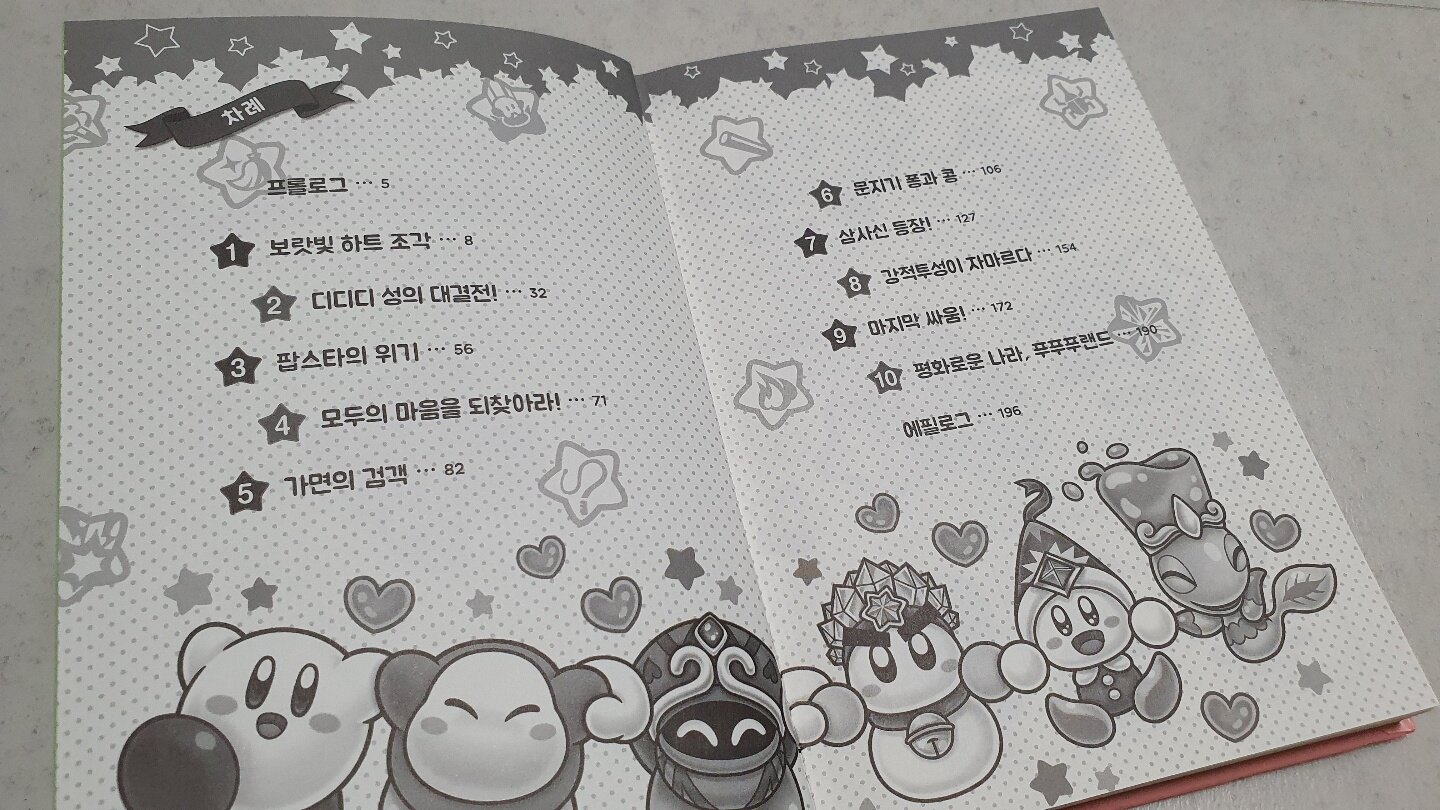 차례
프롤로그 … 5
1 보랏빛 하트 조각 … 8
2 디디디 성의 대결전! … 32
3 팝스타의 위기 … 56
4 모두의 마음을 되찾아라! … 71
5 가면의 검객 … 82
6 문지기 퐁과 콩 … 106
7 삼사신 등장! … 127
8 강적투성이 자마르다 … 154
9 마지막 싸움! … 172
10 평화로운 나라, 푸푸푸랜드 … 190
에필로그 … 196